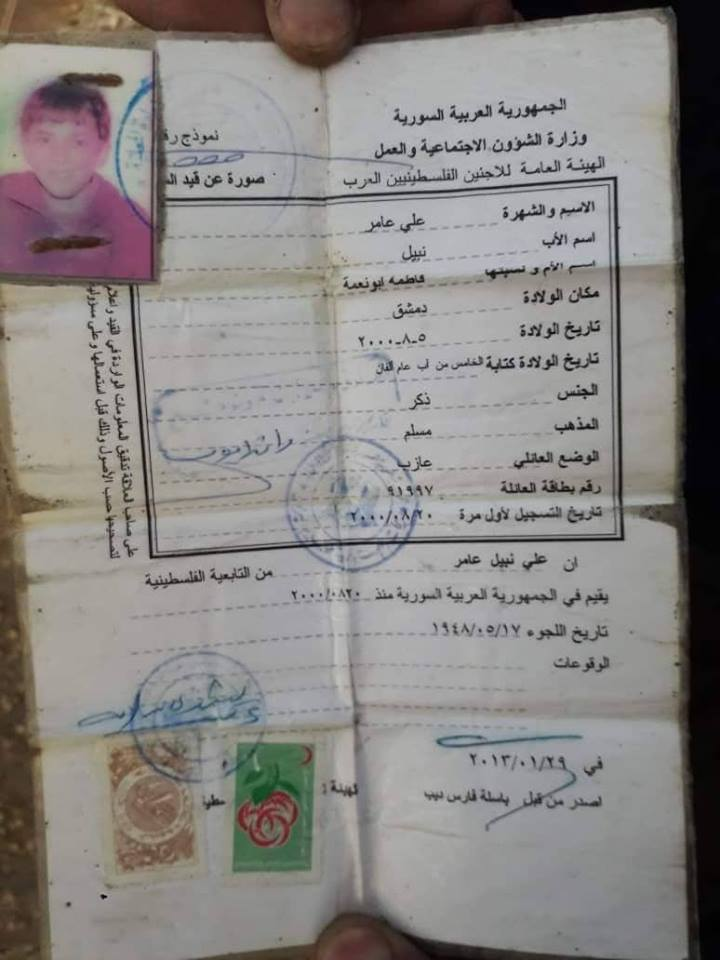 الجمهورية العربية السورية
وزارة الشؤون الاجتماعية والعمل
الهيئة العامة للاجنين الفلسطينيين العرب
نموذج
صورة عن قيد
الاسم والشهرة علي عامر
اسم الأب نبيل
اسم الأم و نسبتها فاطمه ابونعمة
مكان الولادة دمشق
تاريخ الولادة ٥-٨-٢٠٠٠
تاريخ الولادة كتابة الخامس من آب عام الفان
الجنس ذكر
المذهب مسلم
الوضع العائلي عازب
رقم بطاقة العائلة ٩١٩٩٧
تاريخ التسجيل لأول مرة ٢٠٠٠/٠٨/٢٠
على صاحب العلاقة تدقيق المعلومات الواردة في القيد واعلام
لتصحيحها حسب الأصول وذلك قبل استعمالها وعلى مسؤولية
ان علي نبيل عامر من التابعية الفلسطينية
يقيم في الجمهورية العربية السورية منذ ٢٠٠٠/٠٨٢٠
تاريخ اللجوء ١٩٤٨/٠٥/١٧
الوقوعات
في ٢٠١٣/٠١/٢٩
اصدر من قبل باسلة فارس ديب